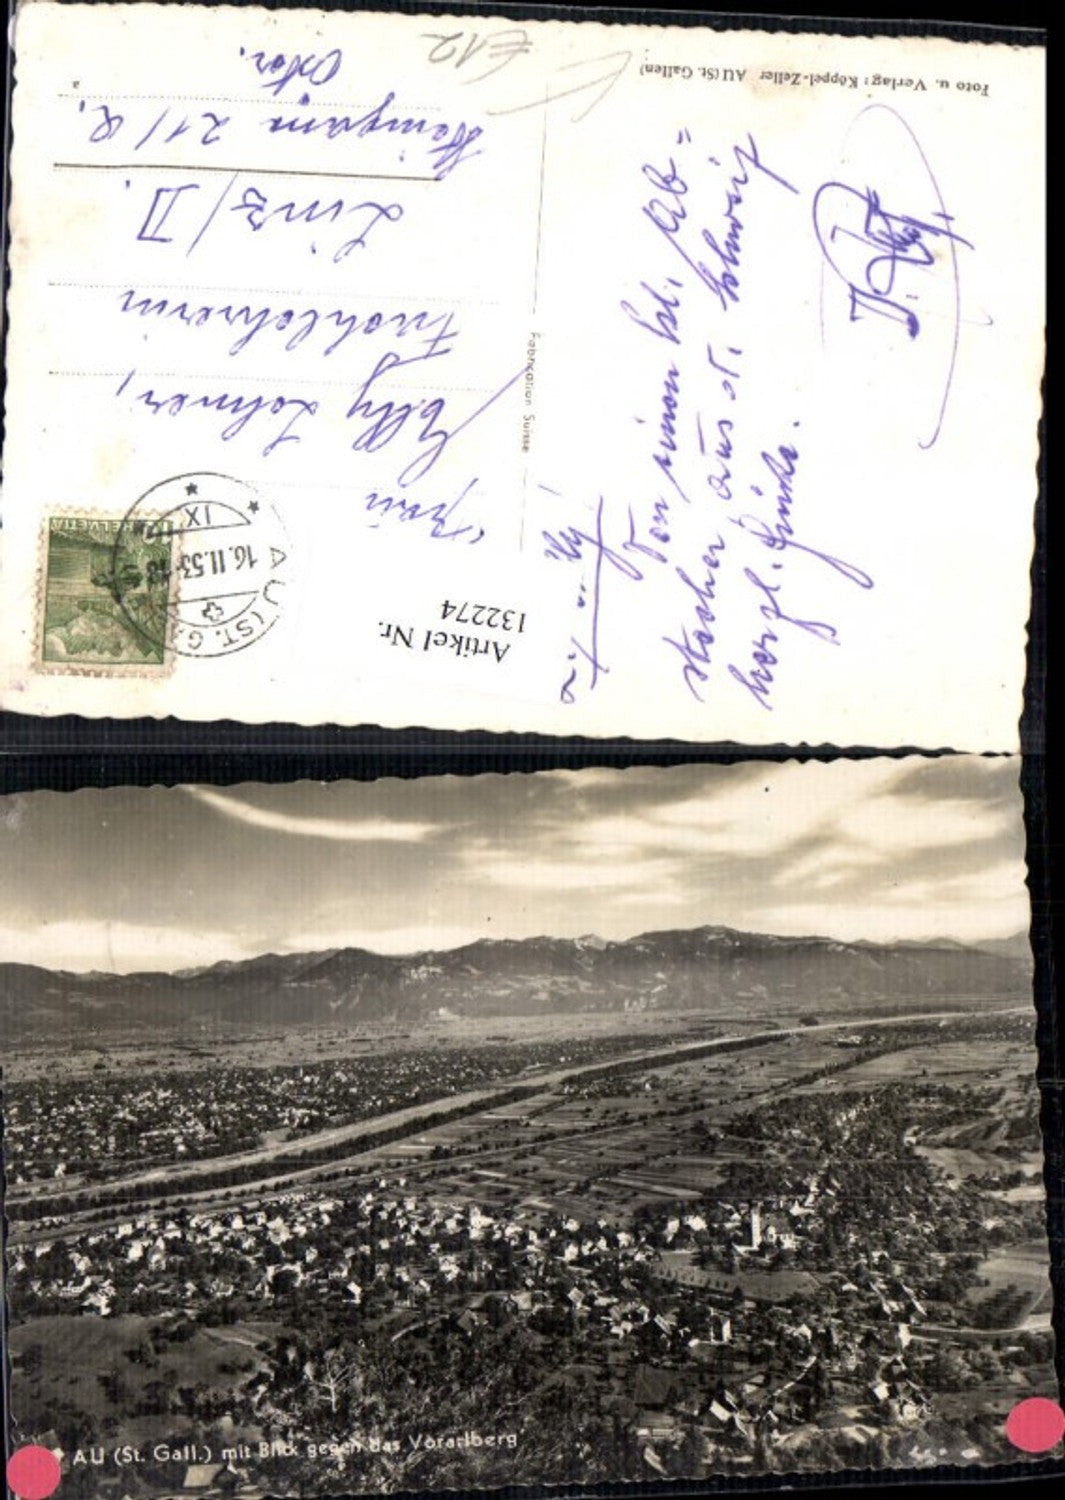 Foto u. Verlag: Köppel-Zeller AU (St. Gallen)
Fabrication Suisse
Von einem kl. Ab=
stecher aus d. Schweiz
herzl. Grüsse.
Frau
Elly Lohner,
Fachlehrerin
Linz/D.
21/2.
Öster.
a
E12
HELVETIA
AU (ST. G.)
16.II.53-18
IX
Artikel Nr.
132274
AU (St. Gall.) mit Blick gegen das Vorarlberg